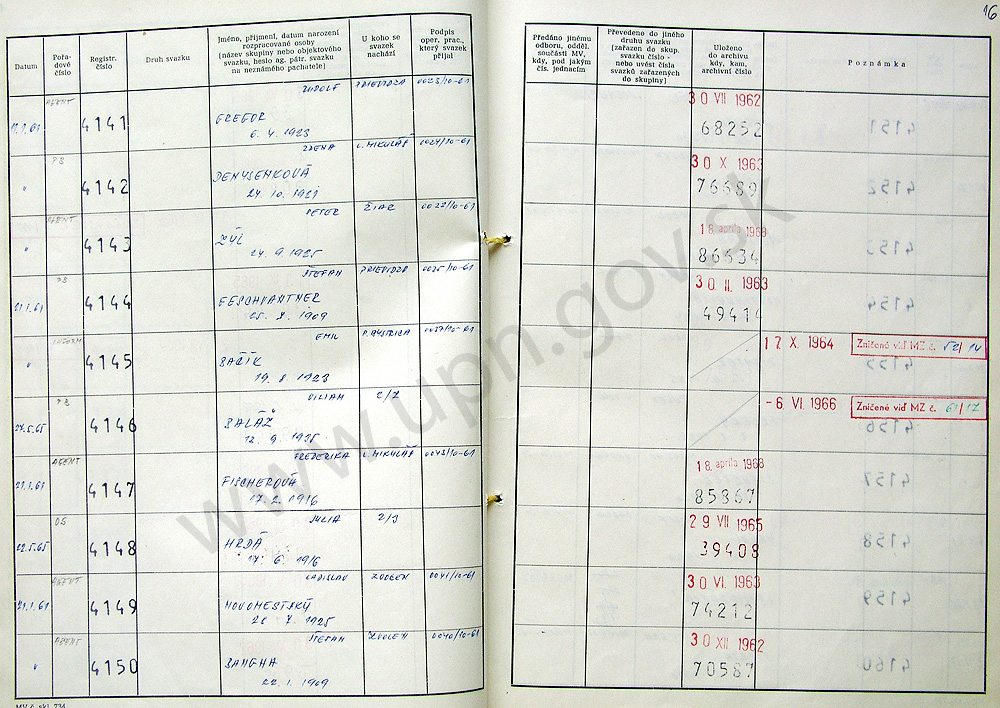 16
Datum
Pořa-
dové
číslo
Registr.
číslo
Druh svazku
Jméno, příjmení, datum narození
rozpracované osoby
(název skupiny nebo objektového
svazku, heslo ag. pátr. svazku
na neznámého pachatele)
U koho se
svazek
nachází
Podpis
oper. prac.,
který svazek
přijal
Předáno jinému
odboru, odděl.
součásti MV,
kdy, pod jakým
čís. jednacím
Převedeno do jiného
druhu svazku
(zařazen do skup.
svazku číslo -
nebo uvést čísla
svazků zařazených
do skupiny)
Uloženo
do archivu
kdy, kam,
archivní číslo
Poznámka
AGENT RUDOLF PRIEVIDZA 0023/10-61 30 VII 1962
4141 GREGOR 68252
6. 4. 1923
PS ZDENA L. MIKULÁŠ 0024/10-61 30 X 1963
" 4142 DENYSENKOVÁ 76689
24. 10. 1921
AGENT PETER ŽIAR 0022/10-61 18. apríla 1968
" 4143 86834
24. 9. 1925
PS ŠTEFAN PRIEVIDZA 0025/10-61 30. II. 1963
21.1.61 4144 FESCHVANTNER 49414
25. 8. 1909
INFORM EMIL P. BYSTRICA 17. X. 1964 Zničené viď MZ č. 52/14
" 4145 BAŽÍK
19. 8. 1923
PS VILIAM - 6. VI. 1966 Zničené viď MZ č. 61/17
24.5.65 4146 BALÁŽ
12. 9. 1925
AGENT FREDERIKA L. MIKULÁŠ 0043/10-61 18. apríla 1968
21.1.61 4147 FISCHEROVÁ 85867
17. 2. 1916
OS JÚLIA 29 VII 1965
22.5.65 4148 HRDÁ 39408
17. 6. 1916
AGENT LADISLAV ZVOLEN 0041/10-61 30 VI. 1963
21.1.61 4149 NOVOMESTSKÝ 74212
20. 7. 1925
AGENT ŠTEFAN ZVOLEN 0040/10-61 30 XII 1962
" 4150 SANGHA 70587
22. 1. 1909
MV č. skl. 734
www.upn.gov.sk